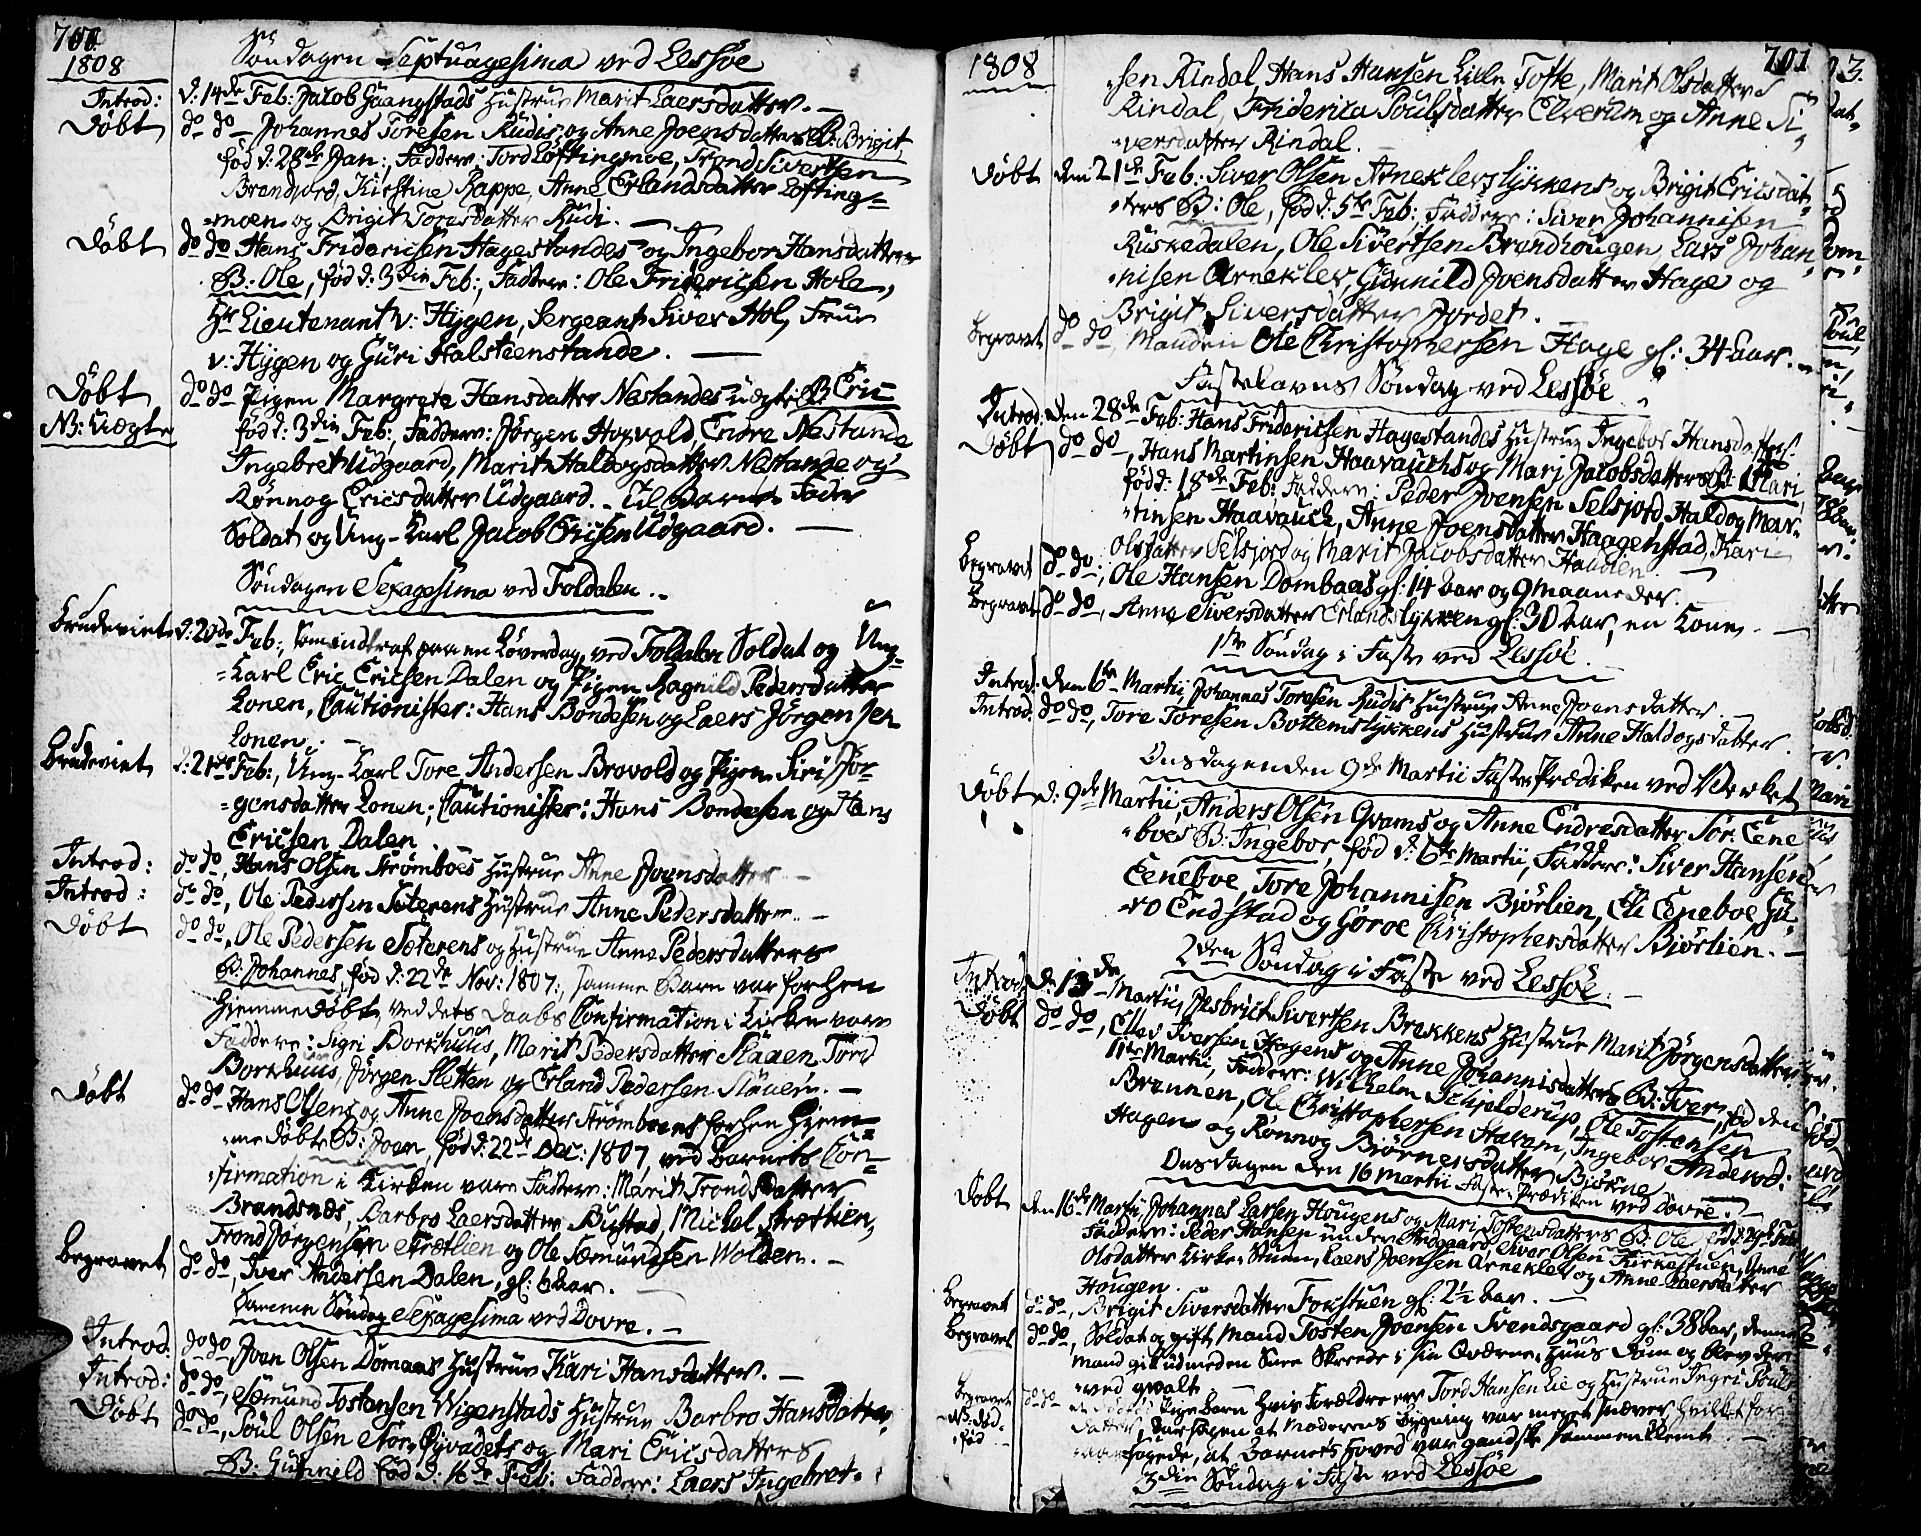 700.
1808
Søndagen Septuagesima ved Lessøe
Introd: d: 14de Feb: Jacob Gaangstads Hustrue Marit Laersdatter. —
Døbt do do — Johannes Toresen Rudis og Anne Joensdatters B: Brigit,
fød d: 28de Jan:, Faddere: Tord Løftingmoe, Trond Sivertsen
Brandvord, Kirstine Rappe, Anne Erlandsdatter Løfting=
=moen og Brigit Toresdatter Rudi. —
Døbt do do Hans Friderichsen Hagestandes og Ingebor Hansdatters
B: Ole, fød d: 3din Feb:, Faddere: Ole Friderichsen Hole,
Hr Lieutenant v: Hÿgen, Sergeant Siver Hol, Frue
v: Hÿgen og Guri Halsteenstande. —
Døbt do do Pigen Margrete Hansdatter Nestandes uægte B: Eric
NB: Uægte fød d: 3din Feb:, Faddere: Jørgen Horvold, Endre Nestande
Ingebret Udgaard, Marit Haldogsdatter Nestande og
Rønnog Ericsdatter Udgaard. Til Barne Fader
Soldat og Ung-Karl Jacob Ericsen Udgaard. —
Søndagen Sexagesima ved Foldalen.
Brudeviet d: 20de Feb:, som indtraf paa en Løverdag, ved Foldalen Soldat og Ung-
=Karl Eric Ericsen Dalen og Pigen Ragnild Pedersdatter
Lonen, Cautionister: Hans Bondesen og Laers Jørgensen
Lonen. —
Brudeviet d: 21de Feb:, Ung-Karl Tore Andersen Brovold og Pigen Siri Jør-
=gensdatter Lonen; Cautionister: Hans Bondesen og Hans
Ericsen Dalen.
Introd: do do, Hans Olsen Strømboes Hustrue Anne Joensdatter —
Introd: do do, Ole Pedersen Sæterens Hustrue Anne Pedersdatter. —
Døbt do do, Ole Pedersen Sæterens og Hustrue Anne Pedersdatters
B: Johannes, fød d: 22de Nov: 1807:, samme Barn var forhen
hiemmedøbt, ved dets Daabs Confirmation i Kirken vare
Faddere: Sigri Borkhuus, Marit Pedersdatter Slaaen Tord
Borkhuus, Jørgen Sletten og Erland Pedersen Slaaen. —
Døbt do do Hans Olsens og Anne Joensdatter Strømboens forhen hiem-
=me døbte B: Joen, fød d: 22de Dec: 1807, ved Barnets Con=
=firmation i Kirken vare Faddere: Marit Tronds Datter
Brandsnes, Barbro Laersdatter Bustad, Michel Stræthien,
Trond Jørgensen Strætlien og Ole Sæmundsen Wolden. —
Begravet do do, Iver Andersen Dalen, gl: 6 aar. —
Samme Søndag Sexagesima ved Dovre. —
Introd: do do, Joen Olsen Domaas Hustrue Kari Hansdatter. —
Introd: do do, Sæmund Tostensen Wigenstads Hustrue Barbro Hansdatter
Døbt do do, Poul Olsen og Mari Ericsdatters
B: Gunnild fød d: 16de Feb: Faddere: Laers Ingebret-
1808
701
sen Rindal, Hans Hansen Lille Tofte, Marit Olsdatter
Rindal, Friderica Poulsdatter Elverum og Anne Si-
=versdatter Rindal.
Døbt den 21de Feb: Siver Olsen Arneklevslykkens og Brigit Ericsdat-
=ters B: Ole, fød d: 5te Feb:, Faddere: Siver Johannisen
Ruskedalen, Ole Sivertsen Brendhougen, Lars Johan-
=nisen Arneklev, Gunnild Joensdatter Hage og
Brigit Siversdatter Jordet. —
Begravet do do, Manden Ole Christophersen Hage gl: 34 aar. —
Fastelavns Søndag ved Lessøe.
Introd: den 28de Feb: Hans Friderichsen Hagestandes Hustrue Ingebor Hansdatter.
Døbt do do —, Hans Martinsen Haavauchs og Mari Jacobsdatters B: Mari
fød d: 18de Feb: Faddere: Peder Joensen Selsjord, Haldog Mar-
=tinsen Haavauck, Anne Joensdatter Haagenstad, Kari
Olsdatter Selsjord og Marit Jacobsdatter Haugen. —
Begravet do do:, Ole Hansen Dombaas gl: 14 aar og 9 Maaneder. —
Begravet do do, Anne Siversdatter Erlandslykken gl: 30 aar, en Kone. —
1ste Søndag i Faste ved Lessøe.
Introd: den 6te Martii, Johannes Toresen Rudis Hustrue Anne Joensdatter.
Introd: do do, Tore Toresen Bottemslykkens Hustrue Anne Haldogsdatter.
Onsdagen den 9de Martii Faste Prædiken ved Værket
Døbt d: 9de Martii, Anders Olsen Qvams og Anne Endresdatter Tor: Eene
=boes B: Ingebor, fød d: 6te Martii, Faddere: Siver Hansen
Eeneboe, Tore Johannisen Biørlien, Eli Eneboe, Gu-
=ro Endstad og Goroe Christophersdatter Biørlien. —
2den Søndag i Faste ved Lessøe. —
Introd: d: 13de Martii, Jesbrict Sivertsen Brekkens Hustrue Marit Jørgensdatter
Døbt do do, Ellev Iversen Hagens og Anne Johannisdatters B: Iver, fød den
11te Martii, Faddere: Wilhelm Schjelderup, Ole Tostensen
Brennen, Ole Christophersen Haram, Ingebor Andersd:
Hagen og Rønnog Biørnersdatter Biørne
Onsdagen den 16 Martii Faste Prædiken ved Dovre. —
Døbt den 16de Martii, Johannes Larsen Hougens og Mari Tostensdatters B: Ole fød d: 29de Feb:
Faddere: Peder Hansen under Andgaard, Siver Olsen Kirkestuen, Anne
Olsdatter Kirke Stuen, Laers Joensen Arneklev og Anne Laersdatter
Hougen.
Begravet do do, Brigit Siversdatter Fokstuen gl: 2½ aar. —
Begravet do do, Soldat og gift Mand Tosten Joensen Svendsgaard gl: 38 aar, denne
Mand gik ud med en Snee Skreede i sin Qværne Huus Dom og blev derved
=ved qvalt
Begravet do do Pige Barn hvis Forældre er Tord Hansen Lie og Hustrue Ingri Pouls
NB: død- Datter, aarsagen at Moderens Bygning var meget snæver hvilket for-
=fød =aarsagede, at Barnets Hoved var gandske sammenklemt —
3din Søndag i Faste ved Lessøe